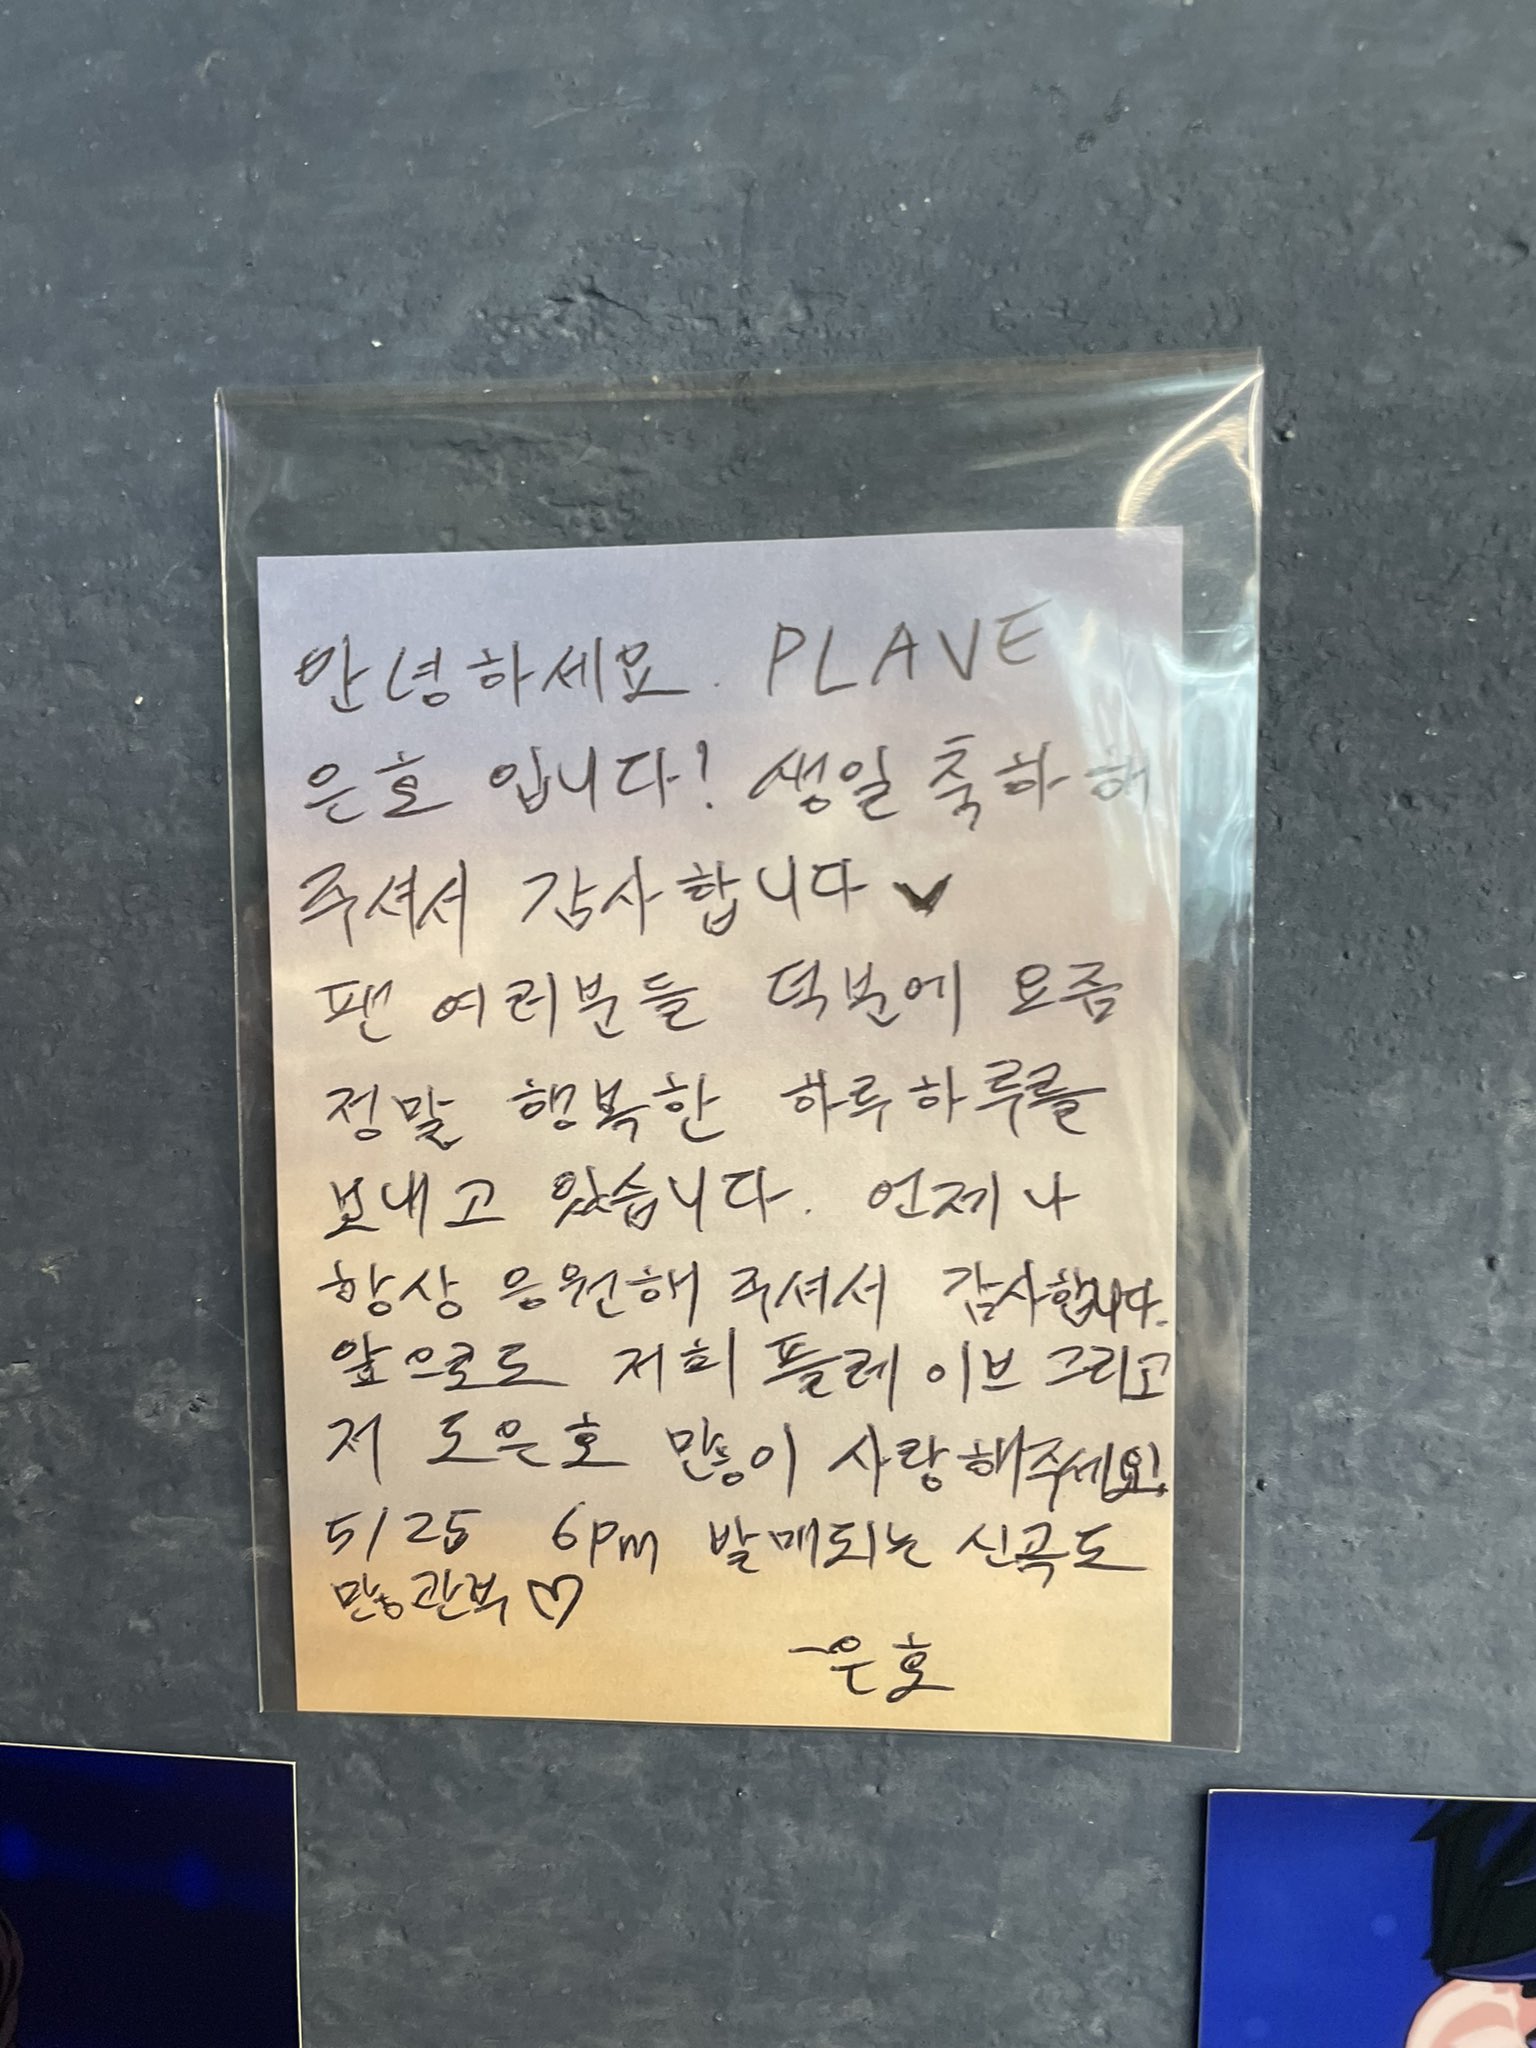 안녕하세요. PLAVE
은호 입니다! 생일 축하해
주셔서 감사합니다 ♥
팬 여러분들 덕분에 요즘
정말 행복한 하루하루를
보내고 있습니다. 언제나
항상 응원해 주셔서 감사합니다.
앞으로도 저희 플레이브 그리고
저 도은호 많이 사랑해주세요!
5/25 6pm 발매되는 신곡도
많관부 ♡
-은호